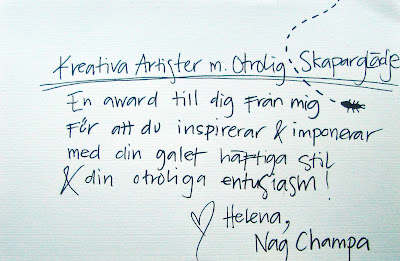 Kreativa Artister m. Otrolig Skaparglädje
En award till dig från mig
För att du inspirerar & imponerar
med din galet häftiga stil
& din otroliga entusiasm!
Helena,
Nag Champa